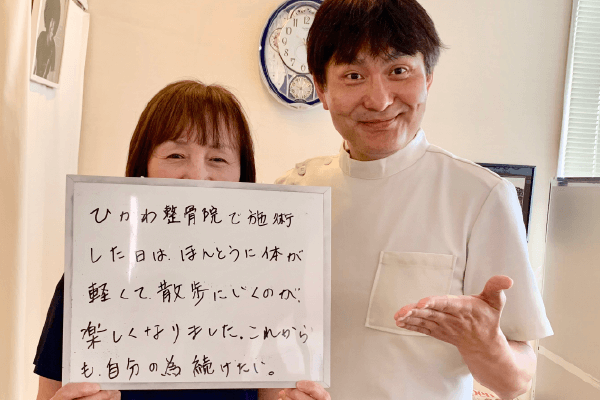 ひかわ整骨院で施術
した日は、ほんとうに体が
軽くて、散歩にいくのが、
楽しくなりました。これから
も、自分の為続けたい。